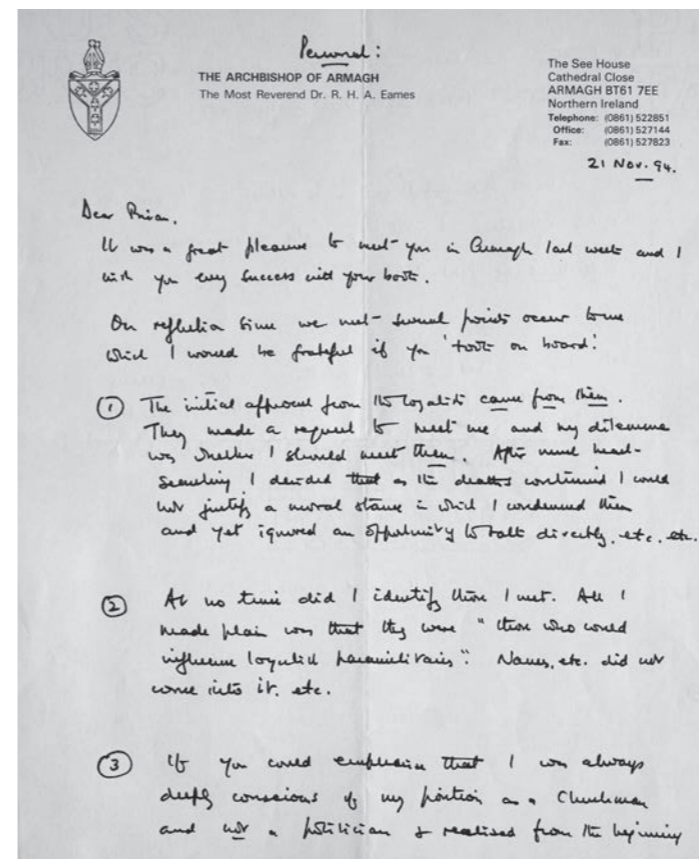 Personal:
THE ARCHBISHOP OF ARMAGH
The Most Reverend Dr. R. H. A. Eames
The See House
Cathedral Close
ARMAGH BT61 7EE
Northern Ireland
Telephone: (0861) 522851
Office: (0861) 527144
Fax: (0861) 527823
21 Nov. 94.
Dear Brian,
It was a great pleasure to meet you in Armagh last week and I
wish you every success with your book.
On reflection since we met several points occur to me
which I would be grateful if you 'took on board':
1 The initial approach from the loyalists came from them.
They made a request to meet me and my dilemma
was whether I should meet them. After much heart-
searching I decided that as the deaths continued I could
not justify a moral stance in which I condemned them
and yet ignored an opportunity to talk directly, etc. etc.
2 At no time did I identify those I met. All I
made plain was that they were "those who could
influence loyalist paramilitaries". Names, etc. did not
come into it. etc.
3 If you could emphasise that I was always
deeply conscious of my position as a Churchman
and not a politician & realised from the beginning